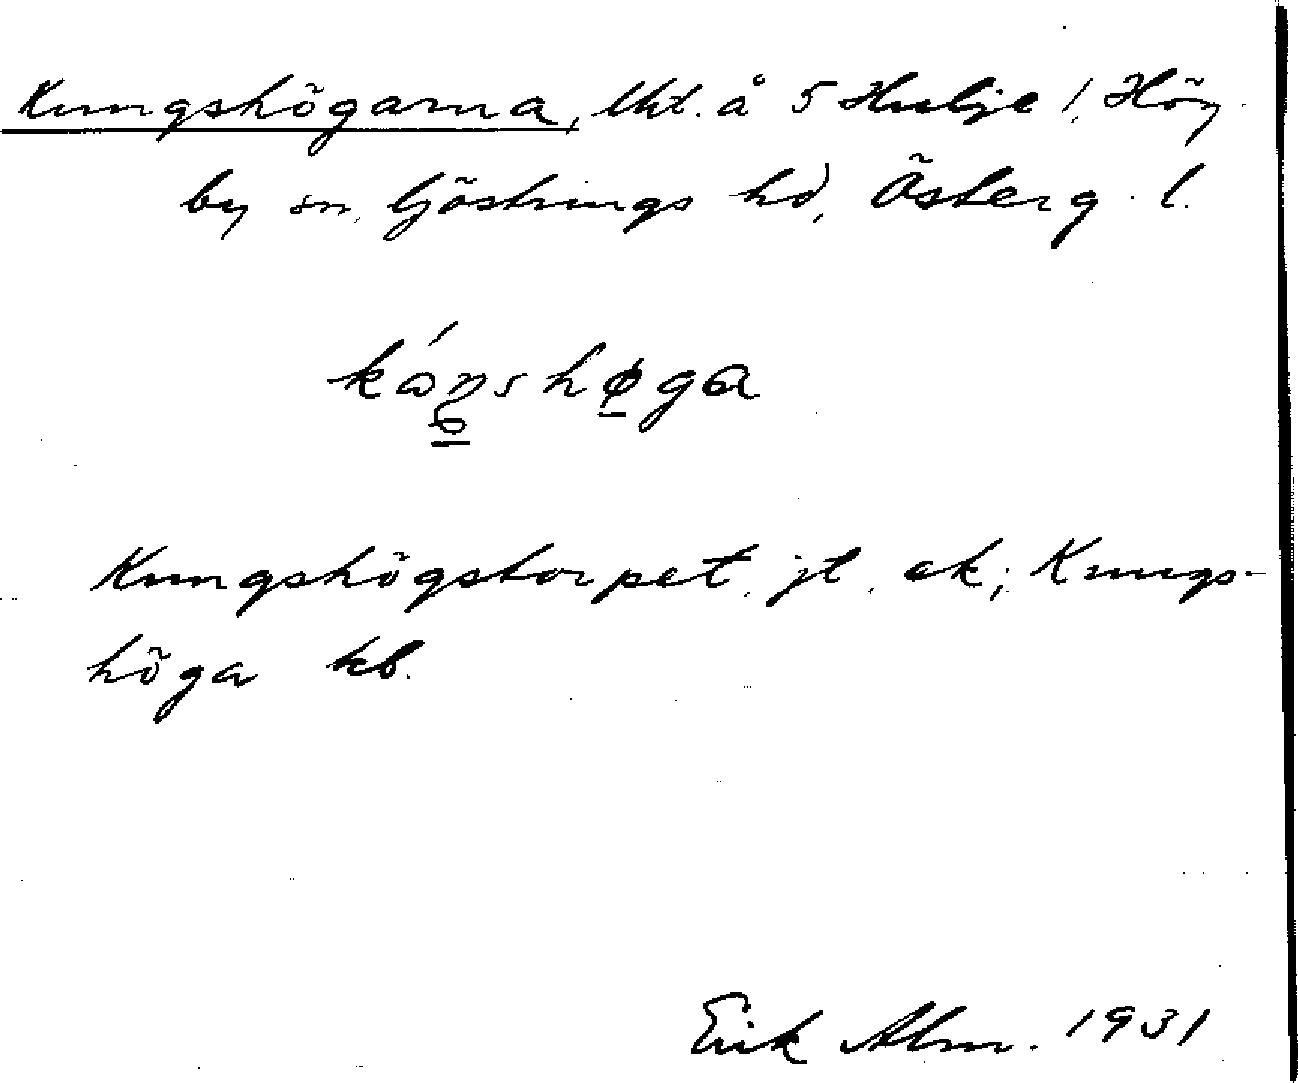 Kungshögarna, lht. å 5 Hulje !, Hög-
by sn, Göstrings hd, Österg. l.
kóŋshøga
Kungshögstorpet, jt, ek; Kungs-
höga kb.
Erik Alm. 1931